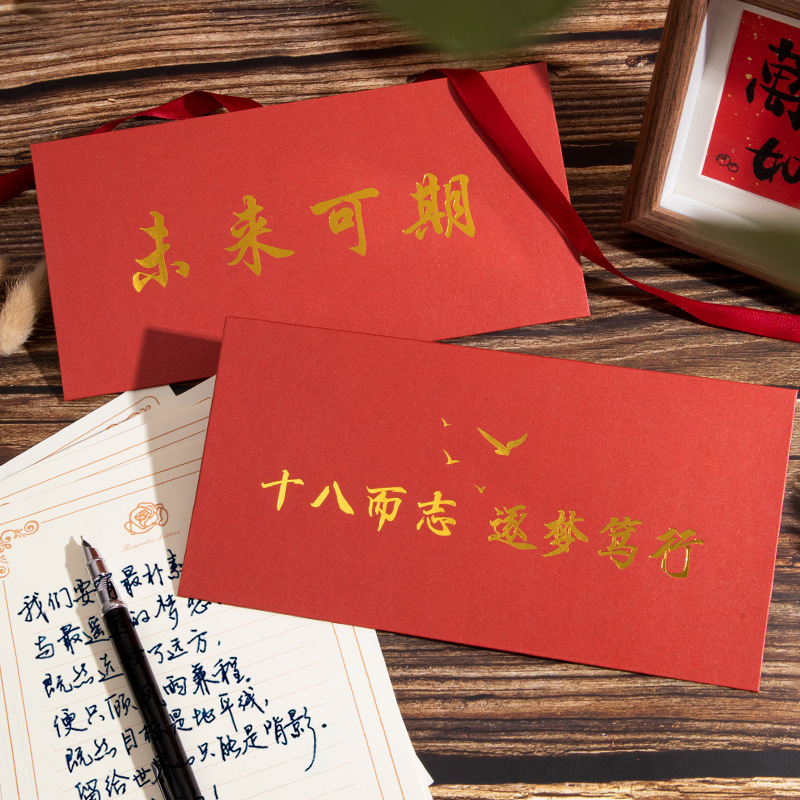 未来可期
十八而志 逐梦笃行
萬
如
Romantic
我们要有最朴素
与最遥的梦想
既然选了远方,
便只顾风雨兼程.
既然目标是地平线,
留给世界只能是背影.